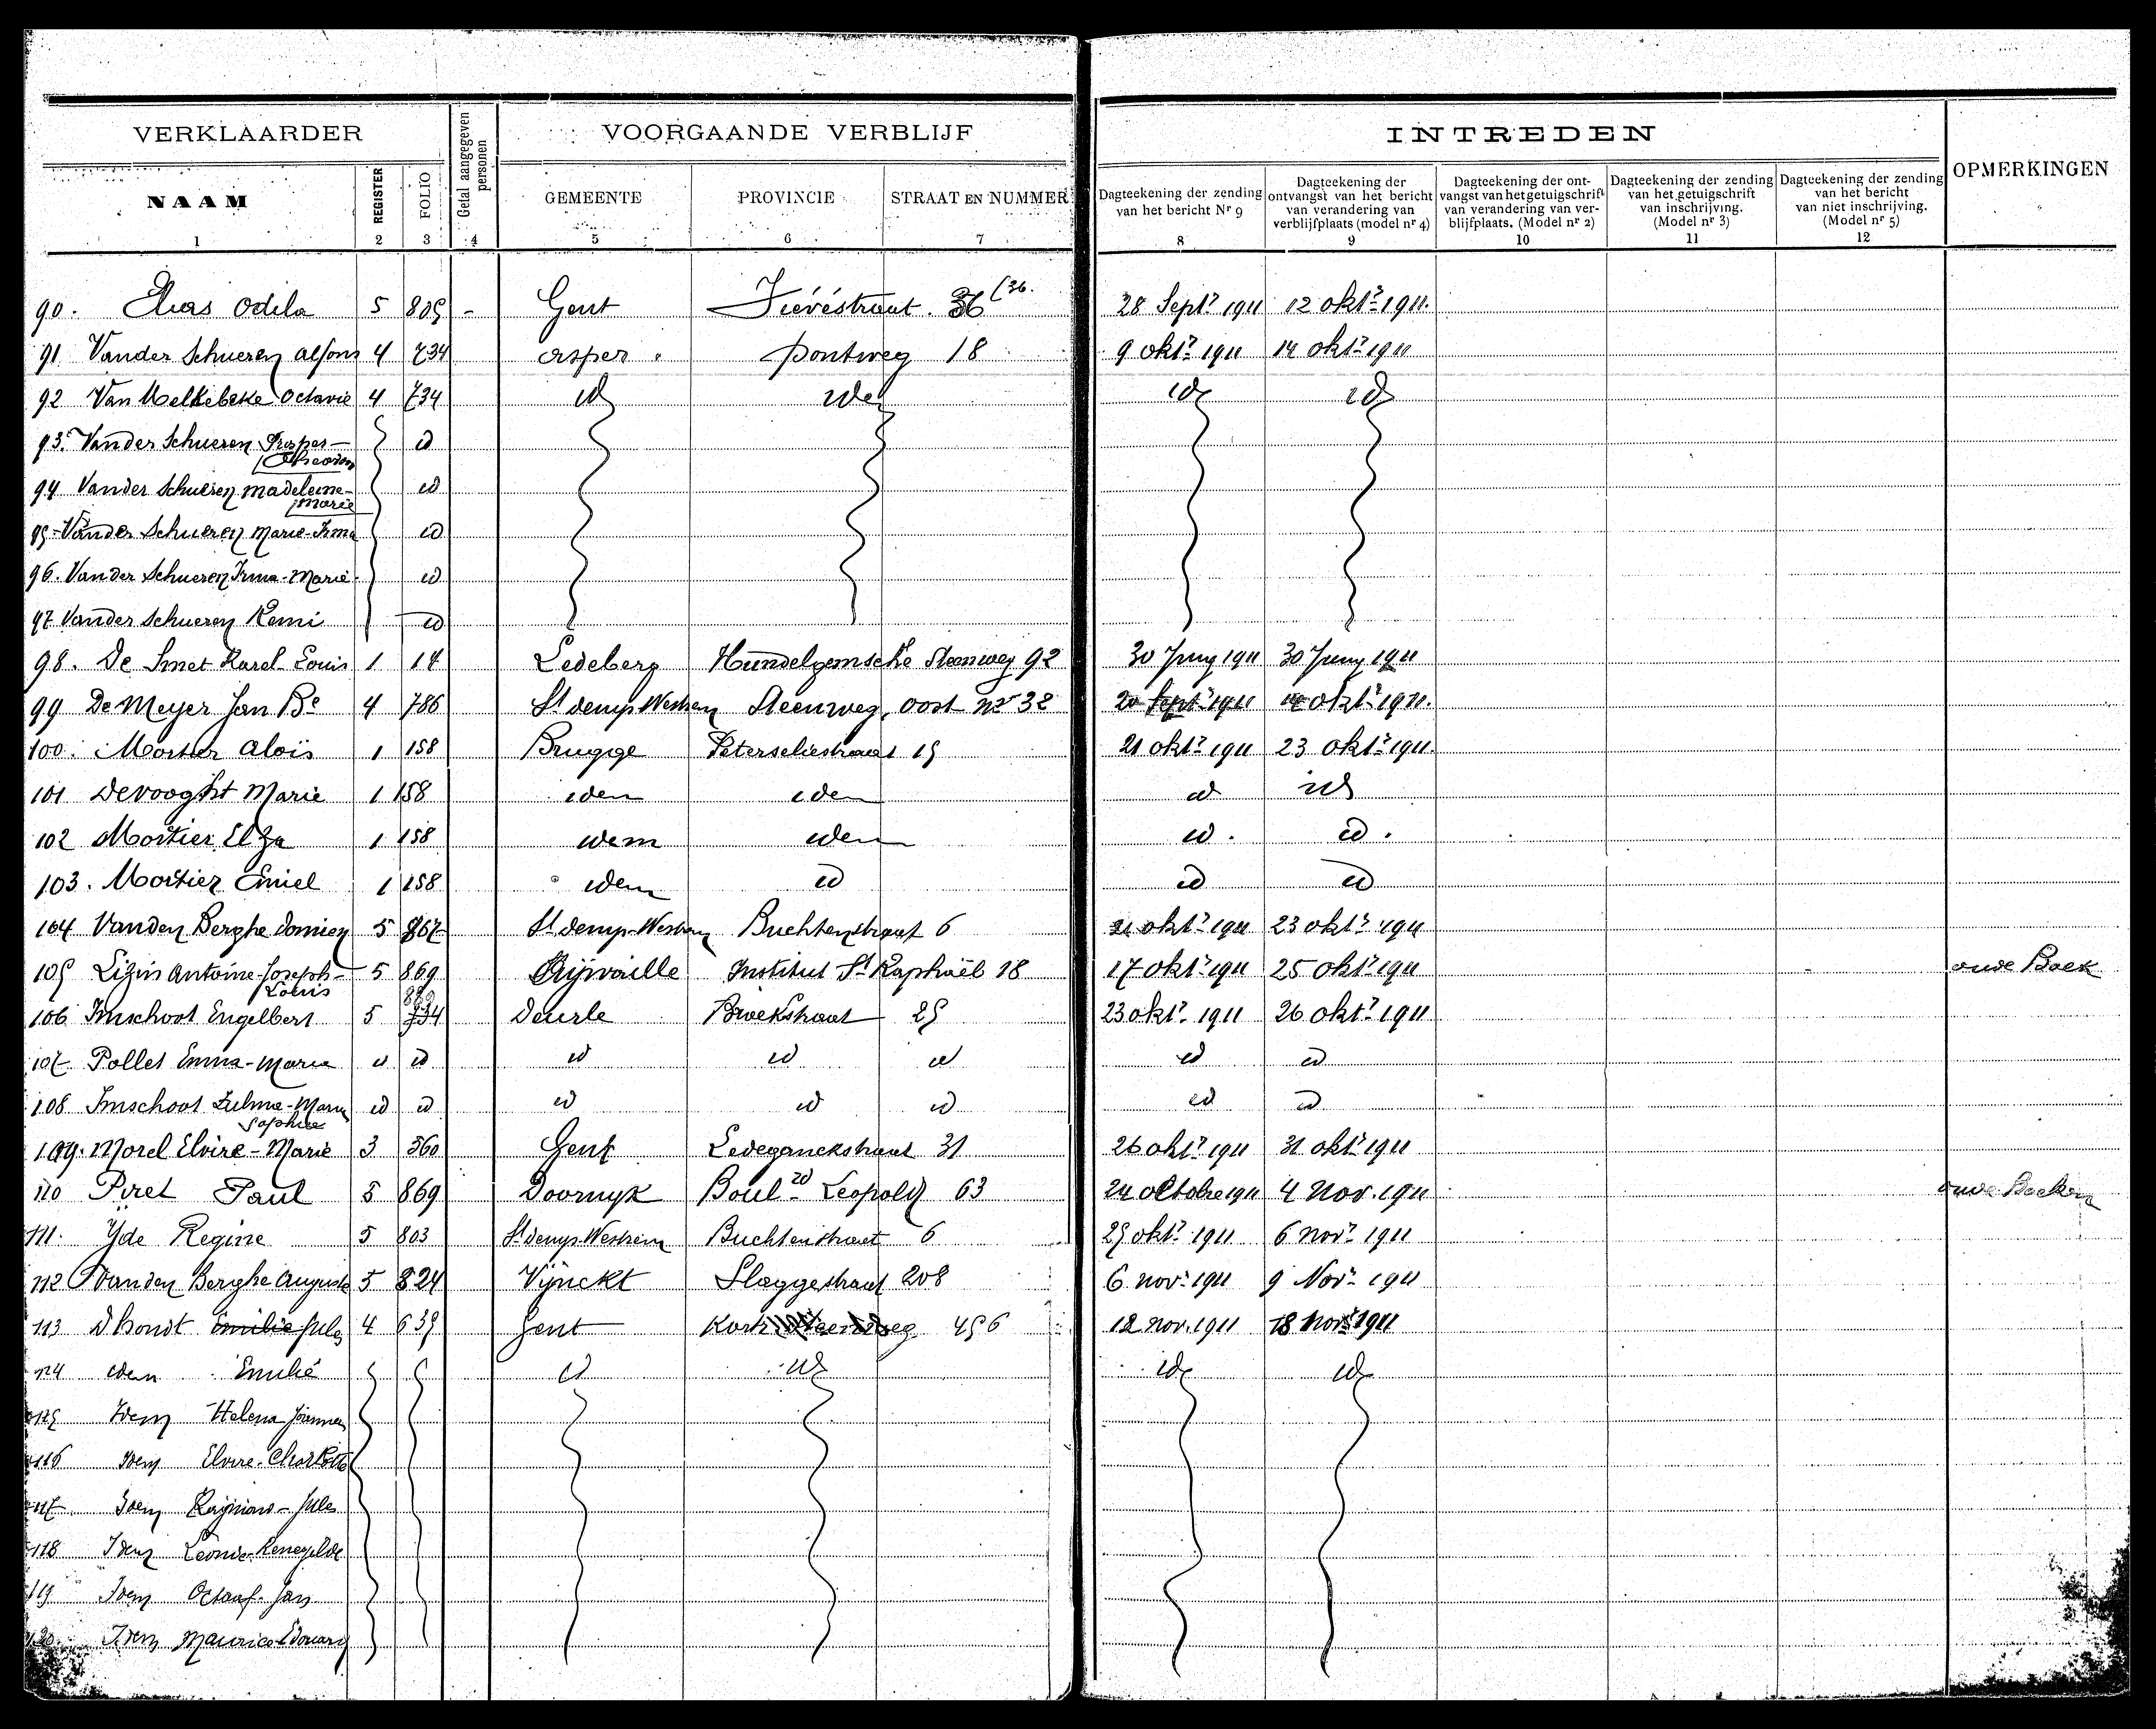 VERKLAARDER
Getal aangegeven personen
VOORGAANDE VERBLIJF
INTREDEN
OPMERKINGEN
NAAM
REGISTER
FOLIO
GEMEENTE
PROVINCIE
STRAAT EN NUMMER
Dagteekening der zending van het bericht Nr 9
Dagteekening der ontvangst van het bericht van verandering van verblijfplaats (model nr 4)
Dagteekening der ont-vangst van het getuigschrift van verandering van ver-blijfplaats. (Model nr 2)
Dagteekening der zending van het getuigschrift van inschrijving. (Model nr 3)
Dagteekening der zending van het bericht van niet inschrijving. (Model nr 5)
1 2 3 4 5 6 7 8 9 10 11 12
90. Elias Odila 5 805 - Gent 36 (36. 28 Sept.r 1911 12 okt.r 1911.
91 Vander Schueren Alfons 4 734 Asper Pontweg 18 9 okt.r 1911 14 okt.r 1911
92 Van Melkebeke Octavie 4 734 id idem id id
93. Vander Schueren Prosper- id
94 Vander Schueren Madeleine- id
Marie
95- Vander Schueren Marie-Irma id
96. Vander Schueren Irma-Marie id
97 Vander Schueren Remi id
98. De Smet Karel Louis 1 14 Ledeberg Hundelgemsche Steenweg 92 30 Juny 1911 30 Juny 1911
99 De Meyer Jan Bte 4 786 St denys Westrem Steenweg, oost nr 32 20 Sept.r 1911 okt.r 1911.
100. Mortier Aloïs 1 158 Brugge Peterseliestraat 15 21 okt.r 1911 23 okt.r 1911.
101 Devooght Marie 1 158 idem idem id id
102 Mortier Elza 1 158 idem idem id. id.
103. Mortier Emiel 1 158 idem id id id
104 Vanden Berghe Domien 5 867 St denys-Westrem Buchtenstraat 6 21 okt.r 1911 23 okt.r 1911
105 Lizin Antoine-Joseph- 5 869 Institut St Raphaël 18 17 okt.r 1911 25 okt.r 1911 oude Boek
Louis
106 Imschoot Engelbert 5 734 Deurle Broekstraat 25 23 okt.r 1911 26 okt.r 1911
107 Pollet Emma-Marie id id id id id id id
108 Imschoot Zulma-Marie id id id id id id id
Sophie
109. Morel Elvire-Marie 3 560 Gent Ledeganckstraat 31 26 okt.r 1911 31 okt.r 1911
110 Piret Paul 5 869 Doornyk Boul.rd Leopold 63 24 octobre 1911 4 Nov. 1911 oude Boeken
111. Yde Regine 5 803 St denys-Westrem Buchtenstraat 6 25 okt.r 1911 6 nov.r 1911
112 Vanden Berghe Auguste 5 824 Vynckt Slaggestraat 208 6 nov.r 1911 9 Nov.r 1911
113 Dhondt Emilie Jules 4 639 Gent Kortr. Steenweg 456 12 nov. 1911 18 Nov.r 1911
114 idem Emilie id id id id
115 Idem Helena Joanna
116 Idem Elvire-Charlotte
117 Idem -Jules
118 Idem Leonie
119 Idem Octaaf-Jan
120. Idem Maurice Edouard